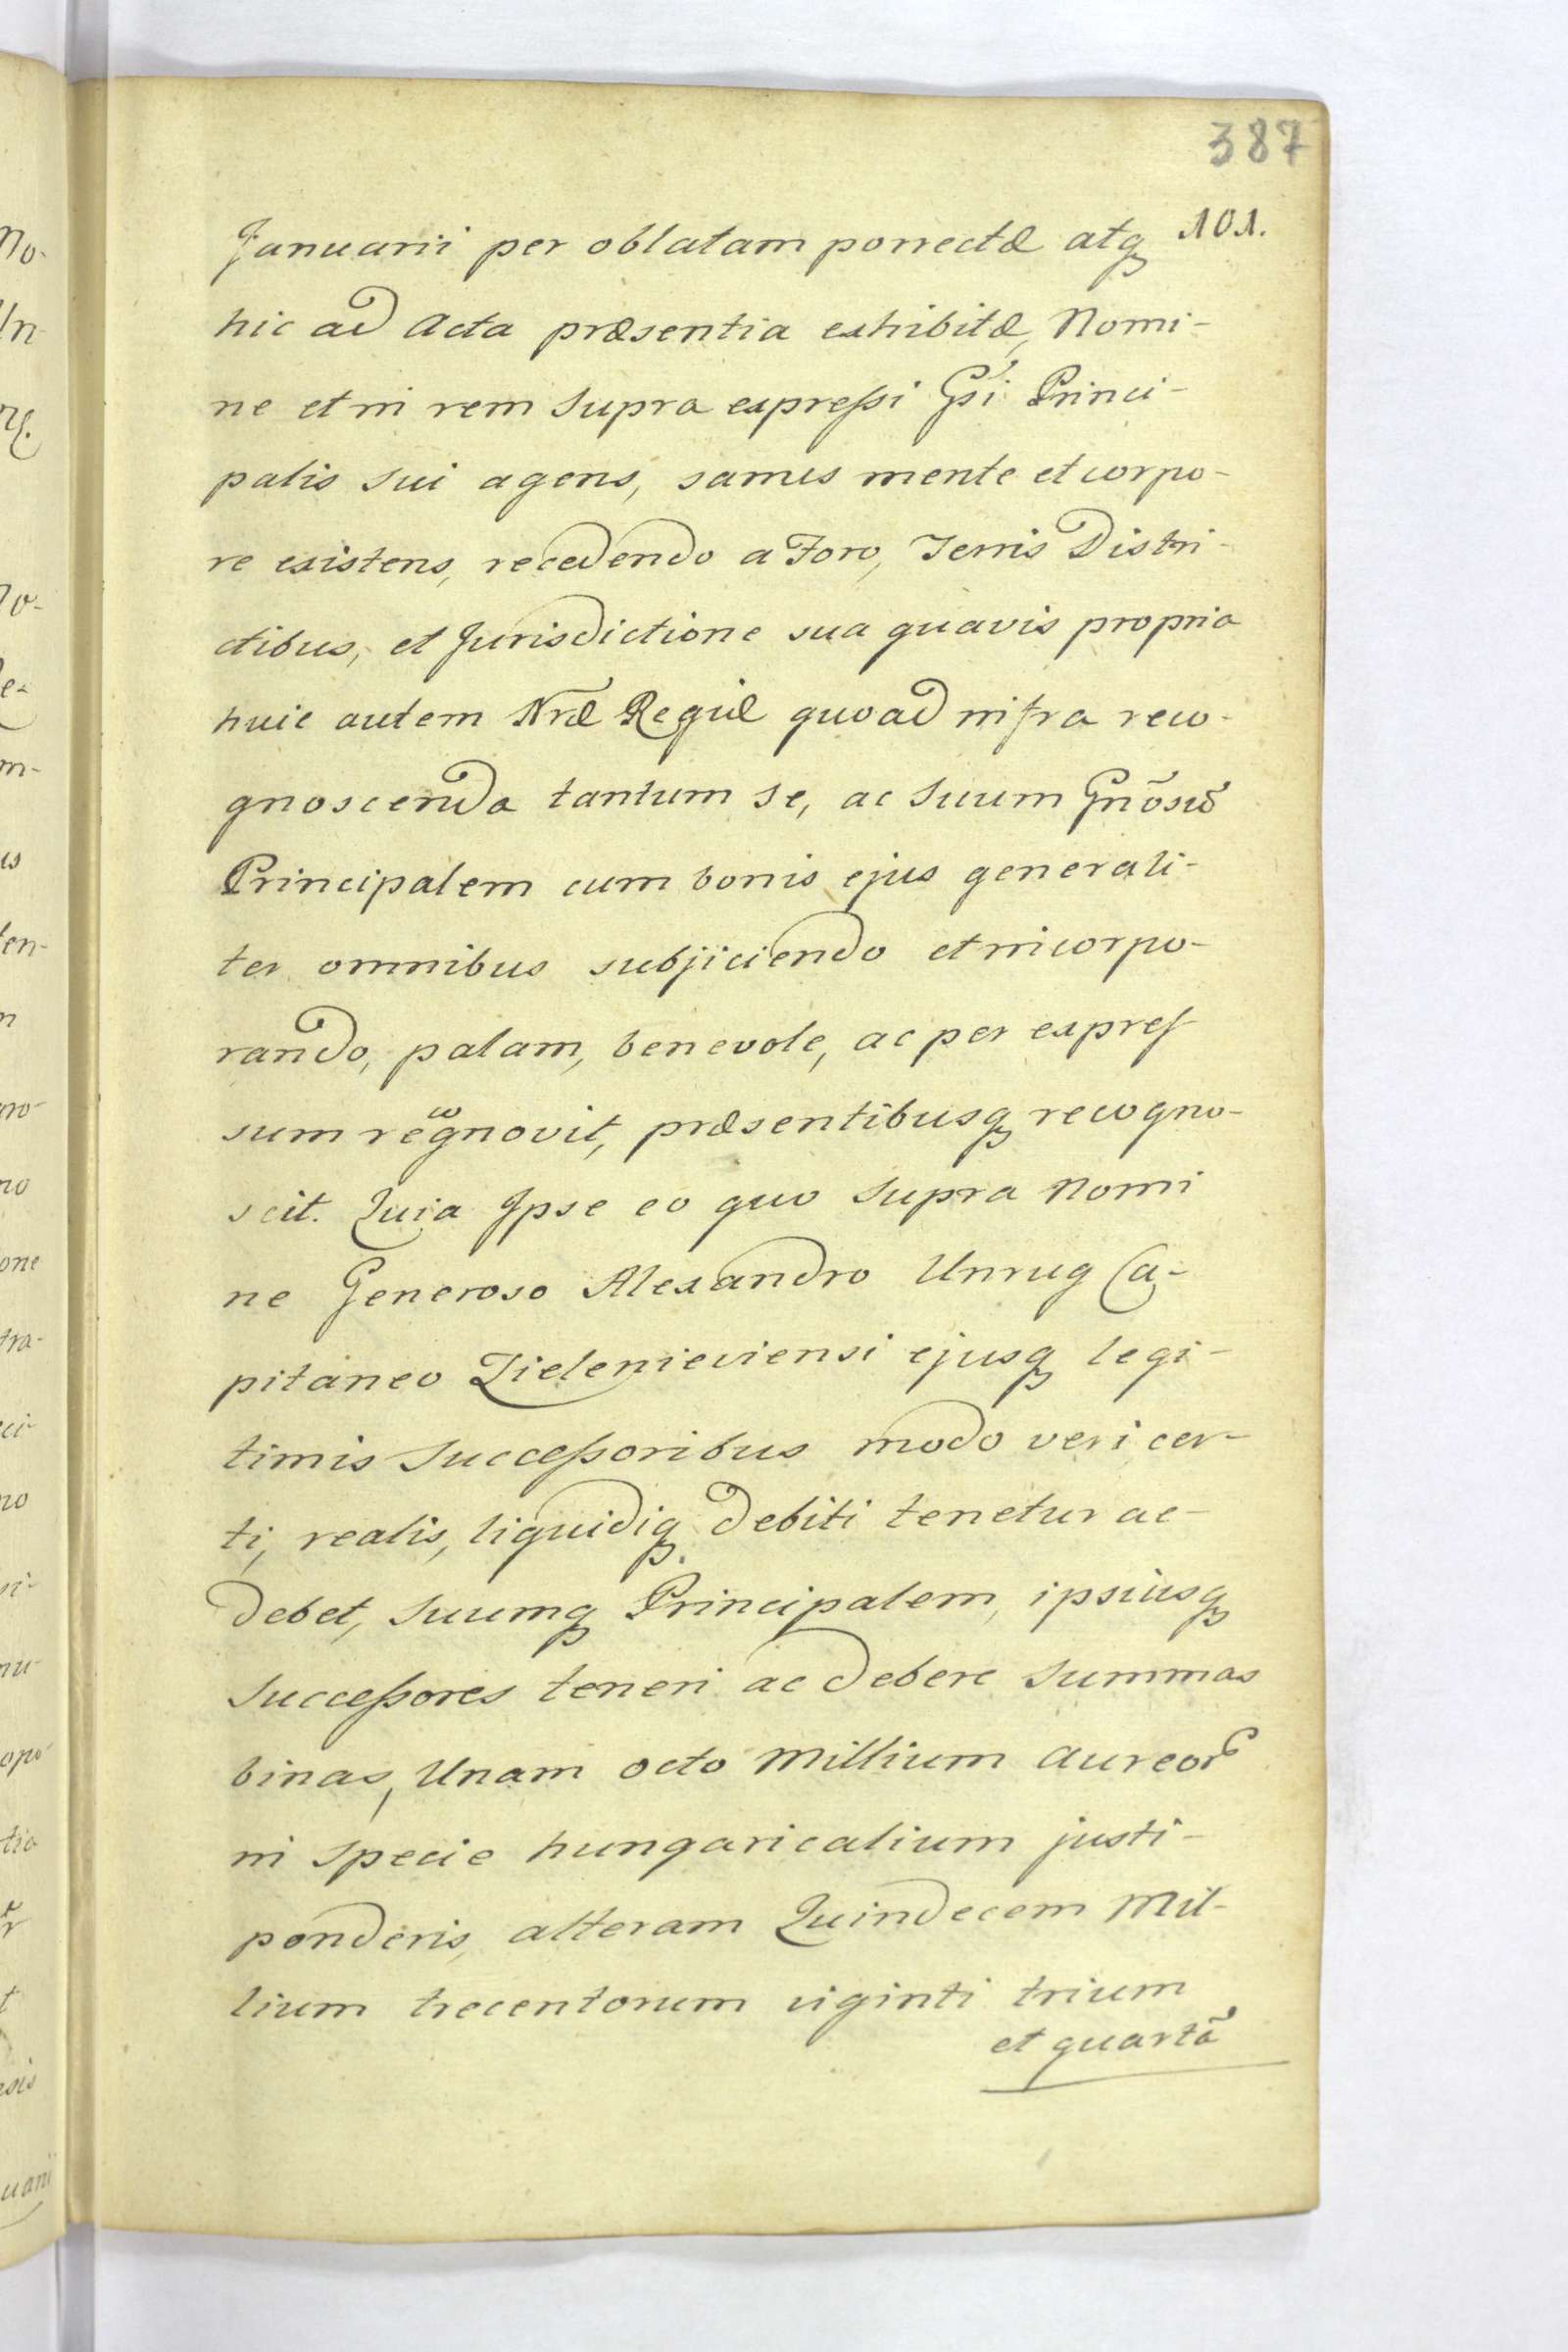 387
101.
Januarii per oblatam porrectæ atq
hic ad Acta præsentia exhibitæ, Nomi-
ne et in rem supra expressi Gsi Princi-
palis sui agens, sanus mente et corpo-
re existens, recedendo a Foro, Terris Distri-
ctibus, et Jurisdictione sua quavis propria
huic autem Nræ Regiæ quoad infra reco-
gnoscenda tantum se, ac suum Gnõsũ
Principalem cum bonis ejus generali-
ter omnibus subjiciendo et incorpo-
rando, palam, benevole, ac per expres
sum recognovit, præsentibusq recogno-
scit. Quia Ipse eo quo supra Nomi
ne Generoso Alexandro Unrug Ca-
pitaneo Zielenieviensi ejusq legi-
timis Successoribus modo veri cer-
ti, realis, liquidiq debiti tenetur ac-
debet, suumq Principalem, ipsiusq
Successores teneri ac debere summas
binas, Unam octo Millium Aureor
in specie hungaricalium justi-
ponderis, alteram Quindecem Mil-
lium trecentorum viginti trium
et quartã